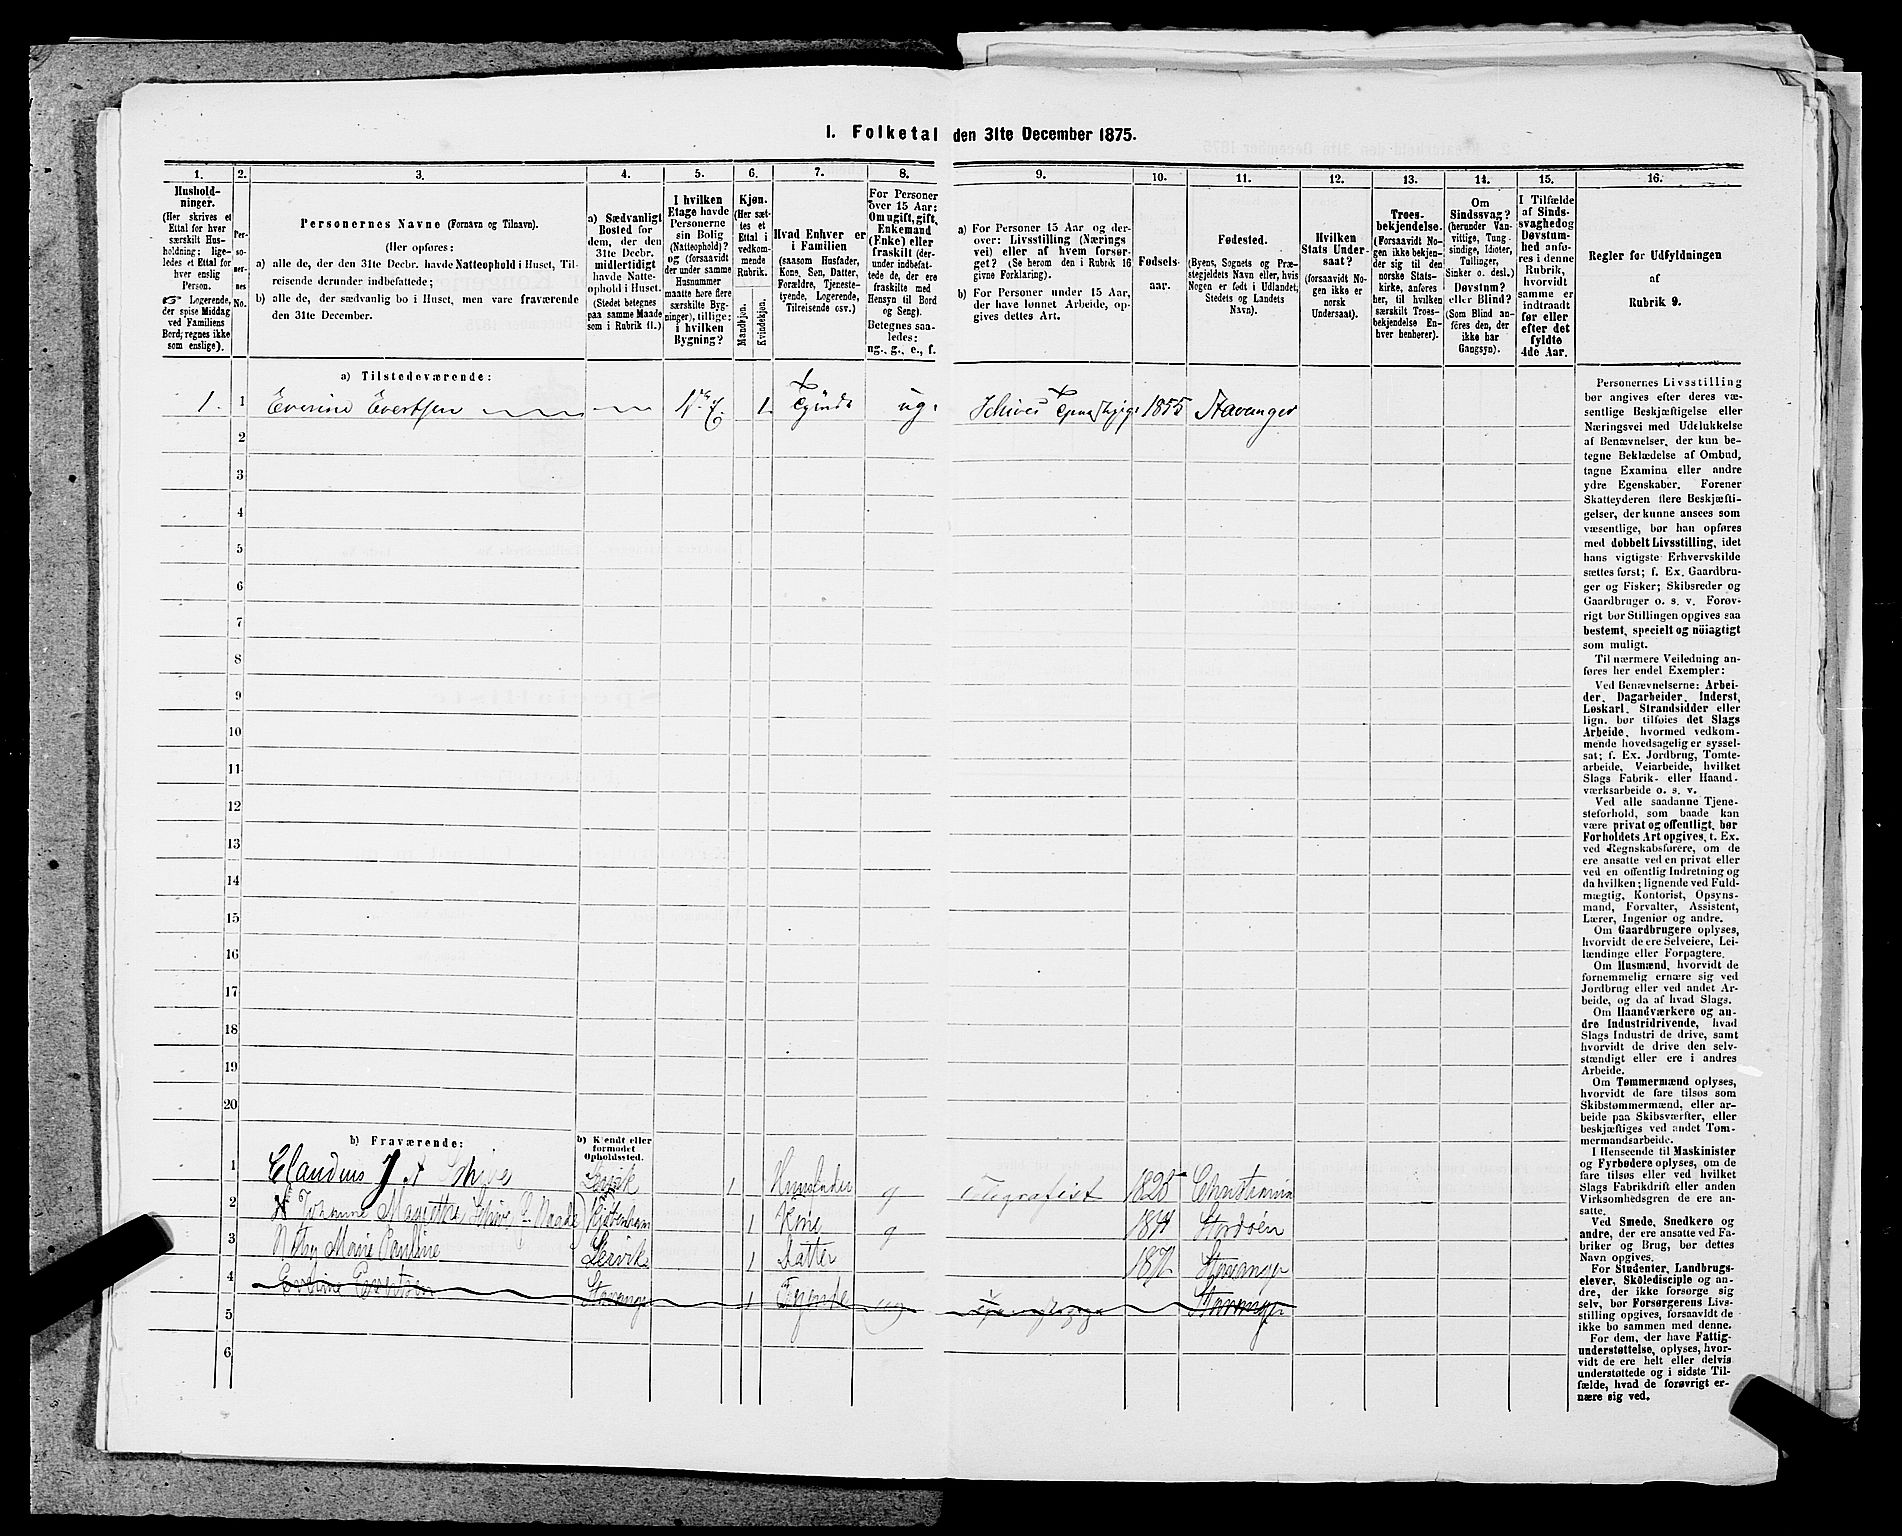 I. Folketal den 31te December 1875.
1. 2. 3. 4. 5. 6. 7. 8. 9. 10. 11. 12. 13. 14. 15. 16.
Hushold-
ninger.
(Her skrives et
Ettal for hver
særskilt Hus-
holdning; lige-
ledes et Ettal for
hver enslig
Person.
☞ Logerende,
der spise Middag
ved Familiens
Bord, regnes ikke
som enslige).
Per-
so-
ner-
nes
No.
Personernes Navne (Fornavn og Tilnavn).
(Her opføres:
a) alle de, der den 31te Decbr. havde Natteophold i Huset, Til-
reisende derunder indbefattede;
b) alle de, der sædvanlig bo i Huset, men vare fraværende
den 31te December.
a) Sædvanligt
Bosted for
dem, der den
31te Decbr.
midlertidigt
havde Natte-
ophold i Huset.
(Stedet betegnes
paa samme Maade
som i Rubrik 11.)
I hvilken
Etage havde
Personerne
sin Bolig
(Natteophold)?
og (forsaavidt
der under samme
Husnummer
maatte høre flere
særskilte Byg-
ninger), tillige:
i hvilken
Bygning?
Kjøn.
(Her sæt-
tes et
Ettal i
vedkom-
mende
Rubrik.
Mandkjøn.
Kvindekjøn.
Hvad Enhver er
i Familien
(saasom Husfader,
Kone, Søn, Datter,
Forældre, Tjeneste-
tyende, Logerende,
Tilreisende osv.)
For Personer
over 15 Aar:
Om ugift, gift,
Enkemand
(Enke) eller
fraskilt (der-
under indbefat-
tede de, der ere
fraskilte med
Hensyn til Bord
og Seng).
Betegnes saa-
ledes:
ug., g., e., f.
a) For Personer 15 Aar og der-
over: Livsstilling (Nærings
vei) eller af hvem forsør-
get? (Se herom den i Rubrik 16
givne Forklaring).
b) For Personer under 15 Aar,
der have lønnet Arbeide, op-
gives dettes Art.
Fødsels-
aar.
Fødested.
(Byens, Sognets og Præ-
stegjeldets Navn eller, hvis
Nogen er født i Udlandet,
Stedets og Landets
Navn).
Hvilken
Stats Under-
saat?
(forsaavidt No-
gen ikke er
norsk
Undersaat).
Troes-
bekjendelse.
(Forsaavidt No-
gen ikke bekjen-
der sig til den
norske Stats-
kirke, anføres
her, til hvilken
særskilt Troes-
bekjendelse En-
hver henhører).
Om
Sindssvag?
(herunder Van-
vittige, Tung-
sindige, Idioter,
Tullinger,
Sinker o. desl.)
Døvstum?
eller Blind?
(Som Blind an-
føres den, der
ikke har
Gangsyn).
I Tilfælde
af Sinds-
svaghed og
Døvstum-
hed anfø-
res i denne
Rubrik,
hvorvidt
samme er
indtraadt
før eller
efter det
fyldte
4de Aar.
Regler før Udfyldningen
af
Rubrik 9.
a) Tilstedeværende:
1. 1 Everine Evertsen 1ste E. 1 Tyende ug. 1855 Stavanger
2
3
4
5
6
7
8
9
10
11
12
13
14
15
16
17
18
19
20
b) Fraværende:
b) Kjendt eller
formodet
Opholdssted.
1 Claudius J. A. Schive Lervik 1 Huusfader g Telegrafist 1825 Christiania
2 Johanne Magrethe Schive Kjøbenhavn 1 Kone g 1844 Stordøen
3 Marie Pauline Lervik 1 Datter Stavanger
4 Everine Evertsen Stavanger 1 Tyende ug Stavanger
5
6
Personernes Livsstilling
bør angives efter deres væ-
sentlige Beskjæftigelse eller
Næringsvei med Udelukkelse
af Benævnelser, der kun be-
tegne Beklædelse af Ombud,
tagne Examina eller andre
ydre Egenskaber. Forener
Skatteyderen flere Beskjæfti-
gelser, der kunne ansees som
væsentlige, bør han opføres
med dobbelt Livsstilling, idet
hans vigtigste Erhvervskilde
sættes først; f. Ex. Gaardbru-
ger og Fisker; Skibsreder og
Gaardbruger o. s. v. Forøv-
rigt bør Stillingen opgives saa
bestemt, specielt og nöiagtigt
som muligt.
Til nærmere Veiledning an-
føres her endel Exempler:
Ved Benævnelserne: Arbei-
der, Dagarbeider, Inderst,
Løskarl, Strandsidder eller
lign. bør tilføies det Slags
Arbeide, hvormed vedkom-
mende hovedsagelig er syssel-
sat; f. Ex. Jordbrug, Tomte-
arbeide, Veiarbeide, hvilket
Slags Fabrik- eller Haand-
værksarbeide o. s. v.
Ved alle saadanne Tjene-
steforhold, som baade kan
være privat og offentligt, bør
Forholdets Art opgives, t. Ex.
ved Regnskabsførere, om de
ere ansatte ved en privat eller
ved en offentlig Indretning og
da hvilken; lignende ved Fuld-
mægtig, Kontorist, Opsyns-
mand, Forvalter, Assistent,
Lærer, Ingeniør og andre.
Om Gaardbrugere oplyses,
hvorvidt de ere Selveiere, Lei-
lændinge eller Forpagtere.
Om Husmænd, hvorvidt de
fornemmelig ernære sig ved
Jordbrug eller ved andet Ar-
beide, og da af hvad Slags.
Om Haandværkere og an-
dre Industridrivende, hvad
Slags Industri de drive, samt
hvorvidt de drive den selv-
stændigt eller ere i andres
Arbeide.
Om Tømmermænd oplyses,
hvorvidt de fare tilsøs som
Skibstømmermænd, eller ar-
beide paa Skibsværfter, eller
beskjæftiges ved andet Tøm-
mermandsarbeide.
I Henseende til Maskinister
og Fyrbødere oplyses, om de
fare tilsøs eller ved hvilket
Slags Fabrikdrift eller anden
Virksomhedsgren de ere an-
satte.
Ved Smede, Snedkere og
andre, der ere ansatte ved Fa-
briker og Brug, bør dettes
Navn opgives.
For Studenter, Landbrugs-
elever, Skoledisciple og an-
dre, der ikke forsørge sig
selv, bør Forsørgerens Livs-
stilling opgives, forsaavidt de
ikke bo sammen med denne.
For dem, der have Fattig-
understøttelse, oplyses, hvor-
vidt de ere helt eller delvis
understøttede og i sidste Til-
fælde, hvad de forøvrigt er-
nære sig ved.